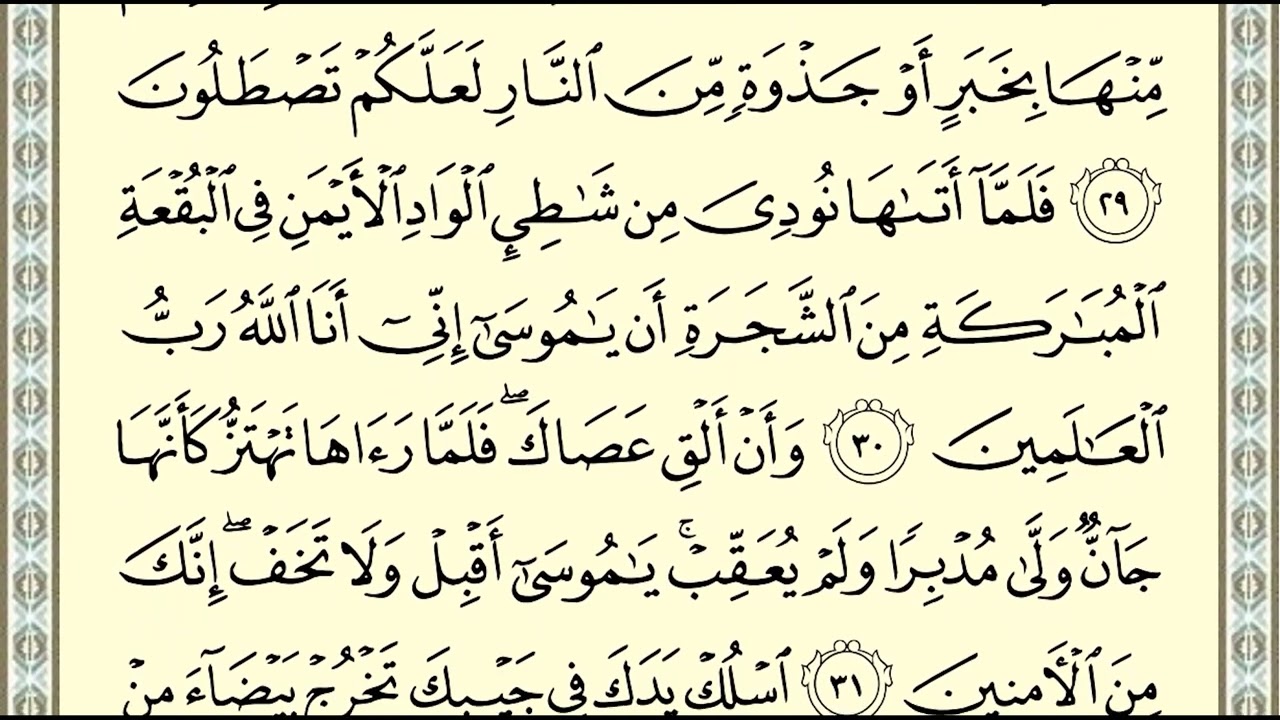 مِّنْهَا بِخَبَرٍ أَوْ جَذْوَةٍ مِّنَ ٱلنَّارِ لَعَلَّكُمْ تَصْطَلُونَ
٢٩ فَلَمَّآ أَتَىٰهَا نُودِىَ مِن شَٰطِئِ ٱلْوَادِ ٱلْأَيْمَنِ فِى ٱلْبُقْعَةِ
ٱلْمُبَٰرَكَةِ مِنَ ٱلشَّجَرَةِ أَن يَٰمُوسَىٰٓ إِنِّىٓ أَنَا ٱللَّهُ رَبُّ
ٱلْعَٰلَمِينَ ٣٠ وَأَنْ أَلْقِ عَصَاكَ ۖ فَلَمَّا رَءَاهَا تَهْتَزُّ كَأَنَّهَا
جَآنٌّ وَلَّىٰ مُدْبِرًا وَلَمْ يُعَقِّبْ ۚ يَٰمُوسَىٰٓ أَقْبِلْ وَلَا تَخَفْ ۖ إِنَّكَ
مِنَ ٱلْأٓمِنِينَ ٣١ ٱسْلُكْ يَدَكَ فِى جَيْبِكَ تَخْرُجْ بَيْضَآءَ مِنْ